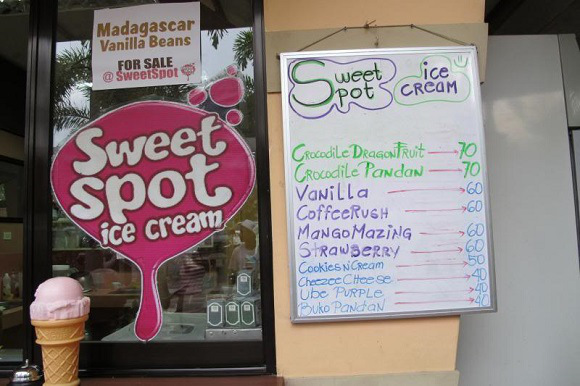 Madagascar
Vanilla Beans
FOR SALE
@ SweetSpot
Sweet
spot
ice cream
Sweet Spot
ice CREAM
CROCODILE DRAGONFRUIT 70
CROCODILE PANDAN 70
VANILLA 60
COFFEERUSH 60
MANGOMAZING 60
STRAWBERRY 60
COOKIES N CREAM 50
CHEEZEE CHEESE 40
UBE PURPLE 40
BUKO PANDAN 40